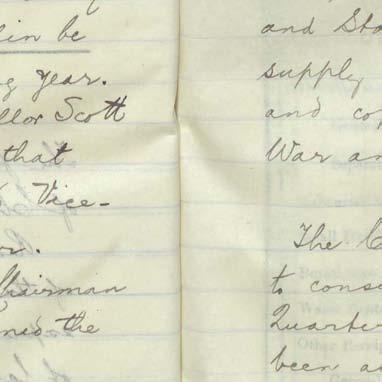 in be
g year.
llor Scott
that
Vice-
or.
Chairman
the
and Sta
supply
and cop
War an
The C
to cons
Quarte
been a